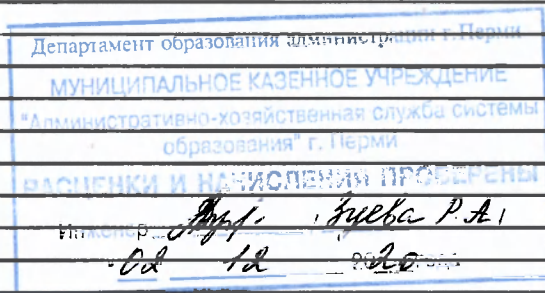 Департамент образования администрации г.Перми
МУНИЦИПАЛЬНОЕ КАЗЕННОЕ УЧРЕЖДЕНИЕ
"Административно-хозяйственная служба системы
образования" г. Перми
РАСЦЕНКИ И НАЧИСЛЕНИЯ ПРОВЕРЕНЫ
Инженер Зуева Р.А.
02 12 2020 года